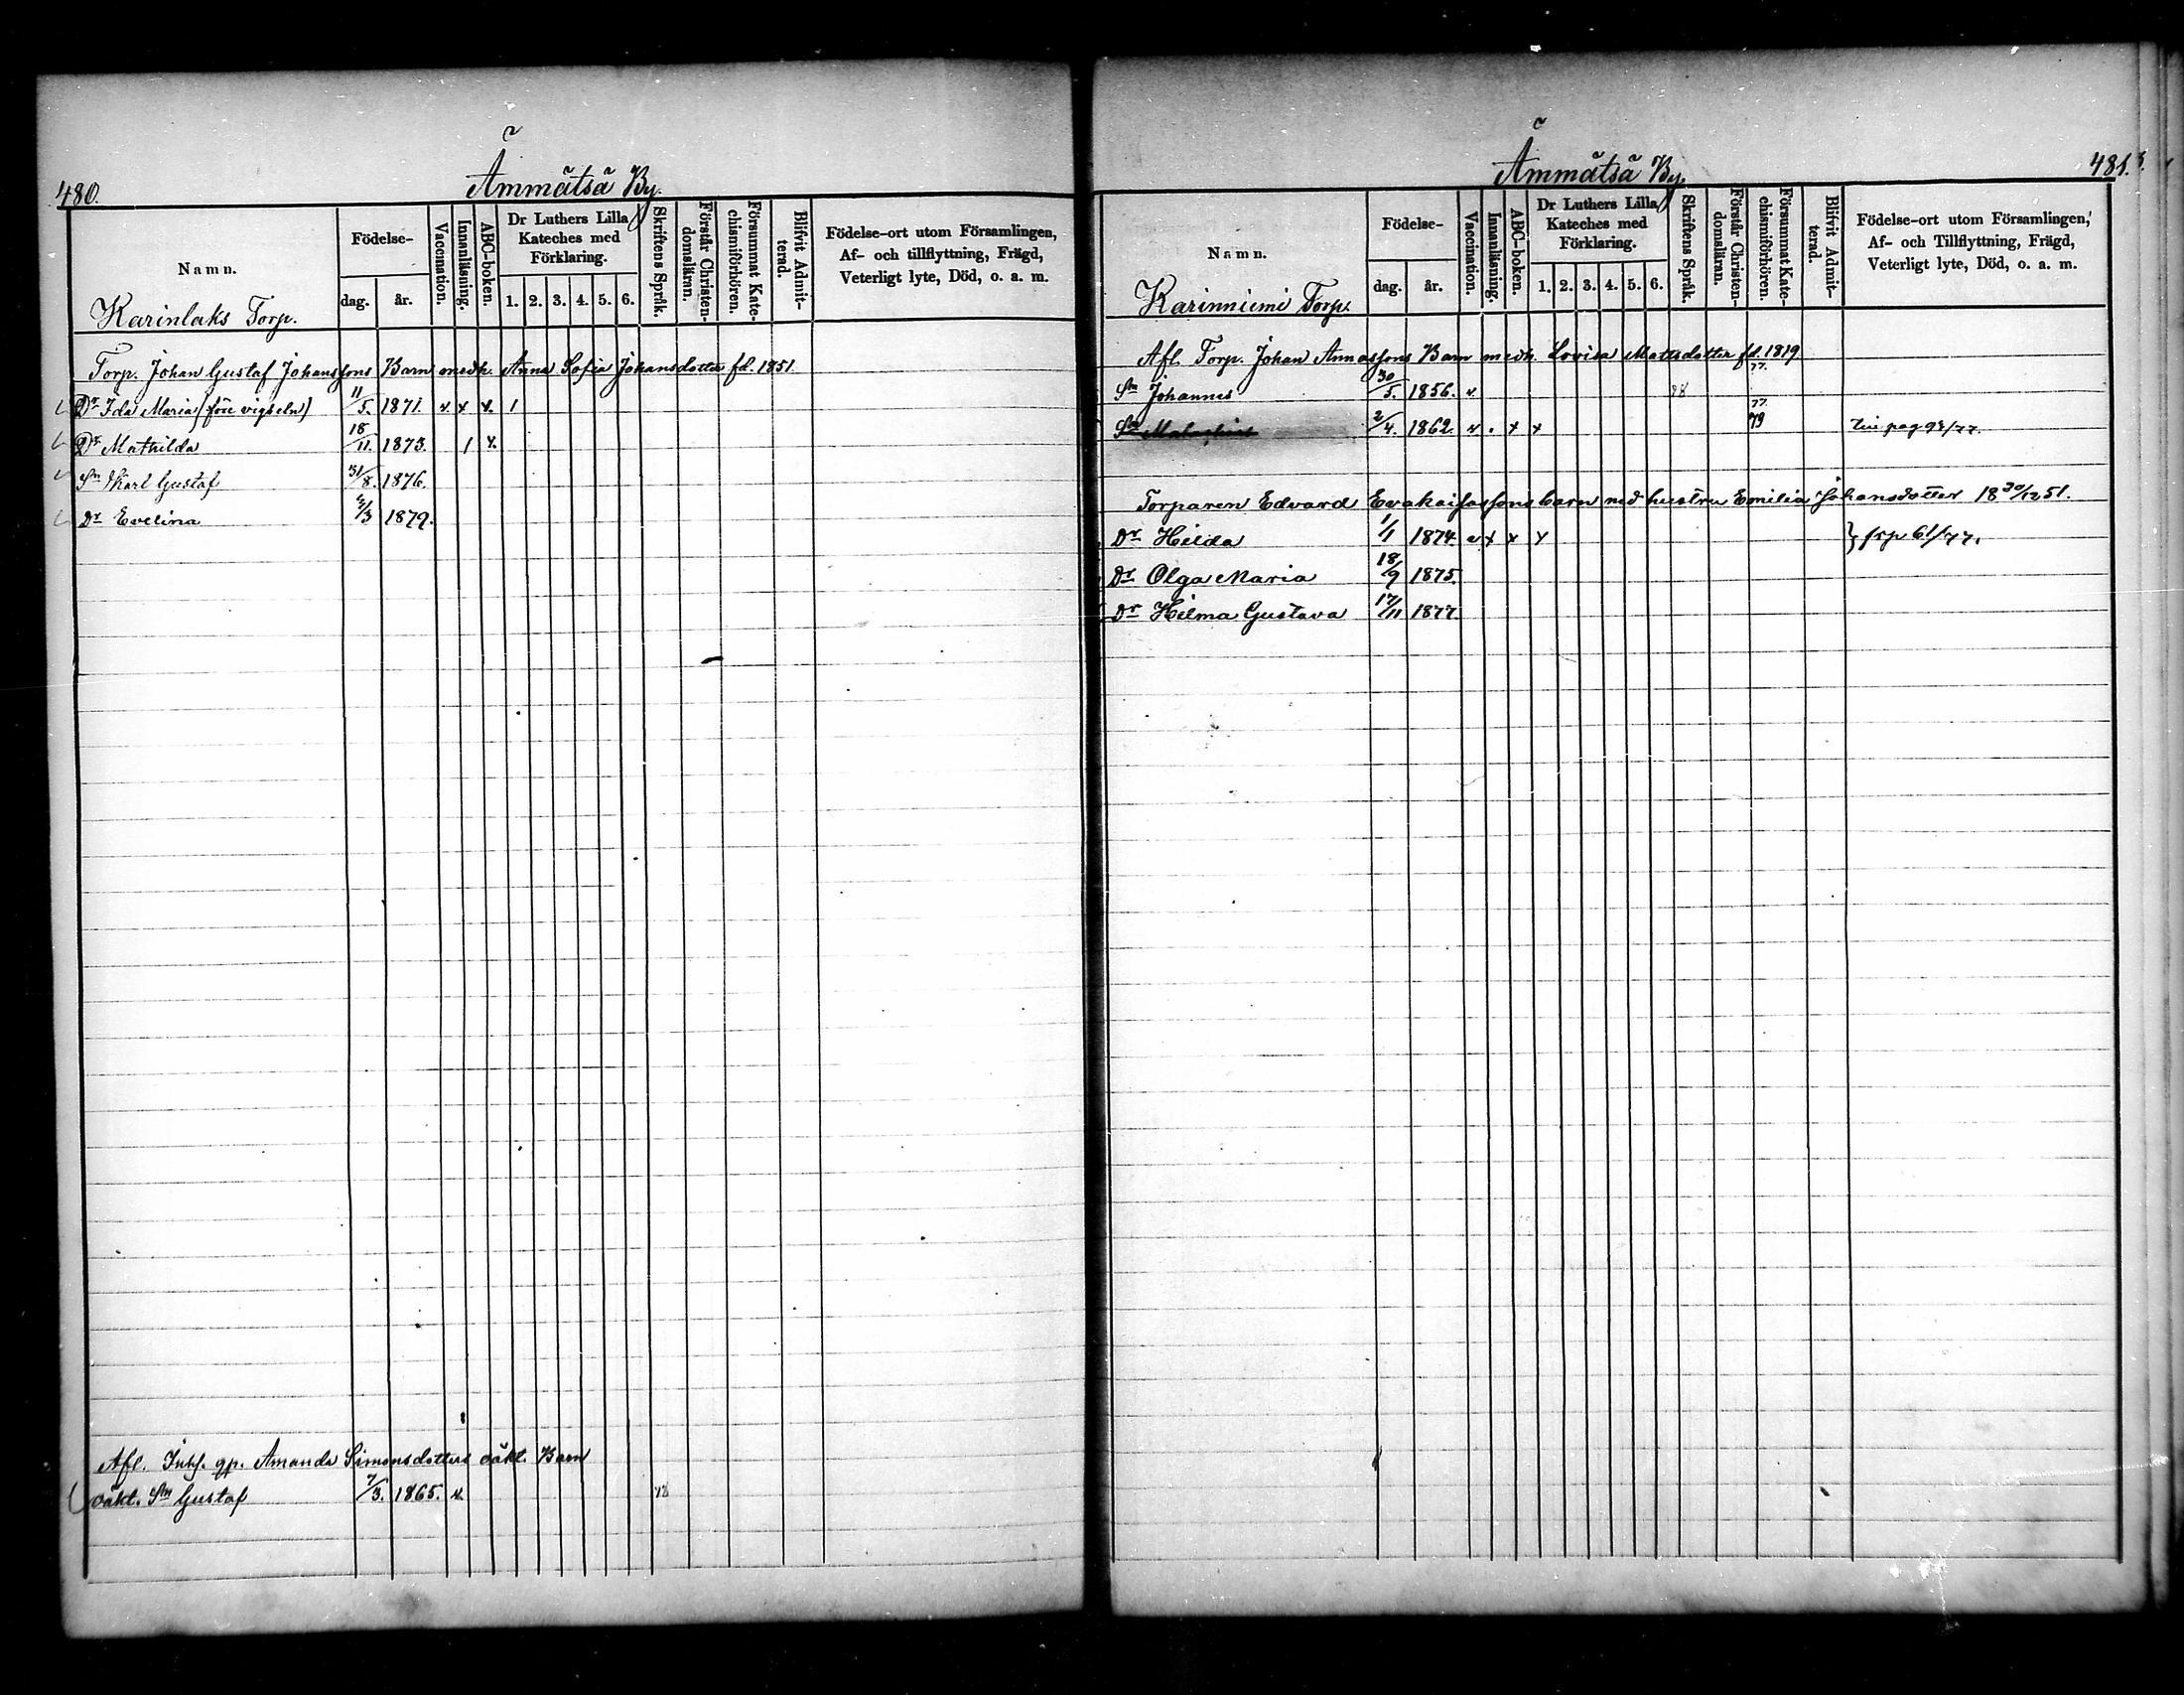 480.
Ämmätsä By.
Namn.
Födelse-
dag. år.
Vaccination.
Innanläsning.
ABC-boken.
Dr Luthers Lilla Kateches med Förklaring.
1. 2. 3. 4. 5. 6.
Skriftens Språk.
Förstår Christendomsläran.
Försummat Katechismiförhören.
Blifvit Admitterad.
Födelse-ort utom Församlingen, Af- och tillflyttning, Frägd, Veterligt lyte, Död, o. a. m.
Karinlaks Torp.
Torp. Johan Gustaf Johanssons Barn medh. Anna Sofia Johansdotter fd. 1851.
Dr Ida Maria (före vigseln) 11/5. 1871. v. x x. 1
Dr Mathilda 18/11. 1873. 1 x.
Sn Karl Gustaf 31/8. 1876.
Dr Evelina /3 1879.
Afl. Inhs. qp. Amanda Simonsdotters oäkt. Barn
oäkt. Sn Gustaf 7/3. 1865. v. 78
481.
Ämmätsä By.
Namn.
Födelse-
dag. år.
Vaccination.
Innanläsning.
ABC-boken.
Dr Luthers Lilla Kateches med Förklaring.
1. 2. 3. 4. 5. 6.
Skriftens Språk.
Förstår Christendomsläran.
Försummat Katechismiförhören.
Blifvit Admitterad.
Födelse-ort utom Församlingen, Af- och Tillflyttning, Frägd, Veterligt lyte, Död, o. a. m.
Karinniemi Torp.
Afl. Torp. Johan Annassons Barn medh. Lovisa Mattsdotter fd. 1819
Sn Johannes 30/5. 1856. v. 78 77.
Sn 2/4. 1862. v. . x x 77. 79 pag 98/77.
Torparen Edvard Evakaisassons barn med hustru Emilia Johansdotter 18 30/12 51.
Dr Hilda 1/1 1874. v x x x } frp 61/77.
Dr Olga Maria 18/9 1875.
Dr Hilma Gustava 17/11 1877.